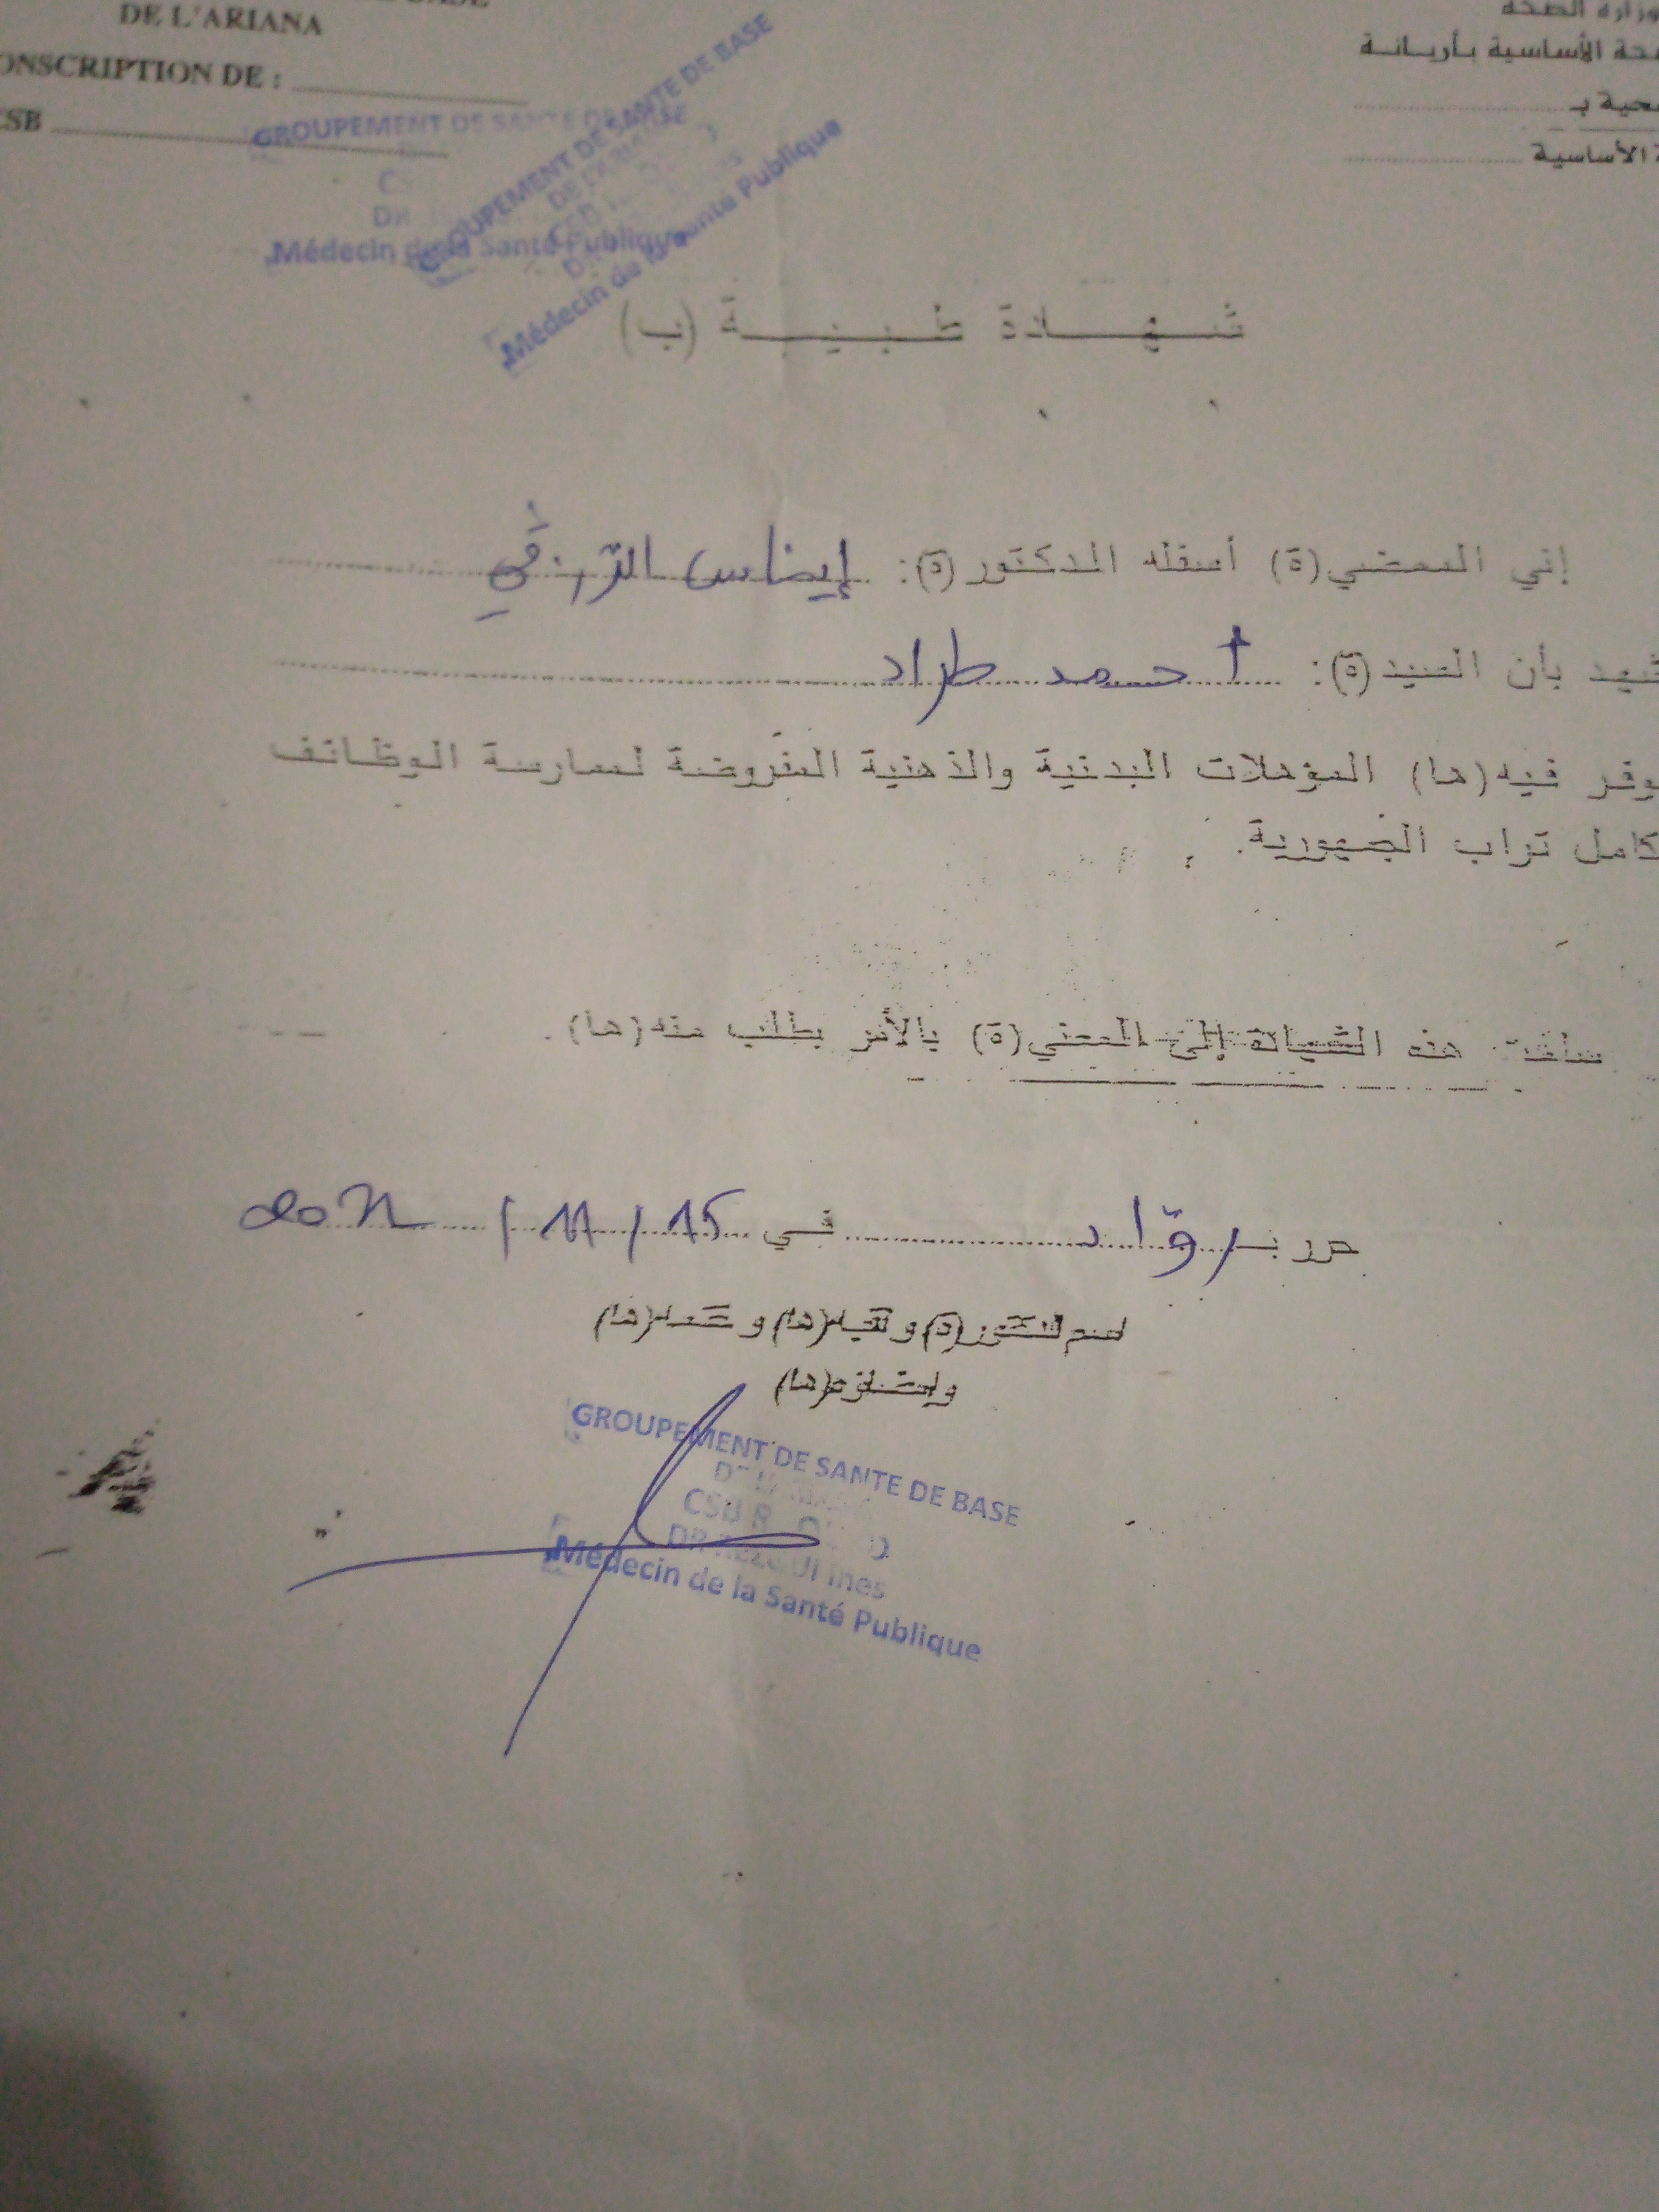 DE L'ARIANA
ONSCRIPTION DE :
CSB
وزارة الصحة
حة الأساسية بأريانة
حية بـ
ة الأساسية
GROUPEMENT DE SANTE DE BASE
DR
Médecin de la Santé Publique
GROUPEMENT DE SANTE DE BASE
DE L'ARIANA
Médecin de la Santé Publique
شهادة طبية (ب)
إني الممضي(ة) أسفله الدكتور(ة): إيناس الرزقي
شهد بأن السيد(ة): أحمد طراد
وفر فيه(ها) المؤهلات البدنية والذهنية المفروضة لممارسة الوظائف
كامل تراب الجمهورية.
سلمت هذه الشهادة إلى المعني(ة) بالأمر بطلب منه(ها).
حرر بـ روّاد في 15 / 11 /
إسم الدكتور(ة) و لقبه(ها) و ختمه(ها)
وإمضاؤه(ها)
GROUPEMENT DE SANTE DE BASE
CSB
DR Ines
Médecin de la Santé Publique